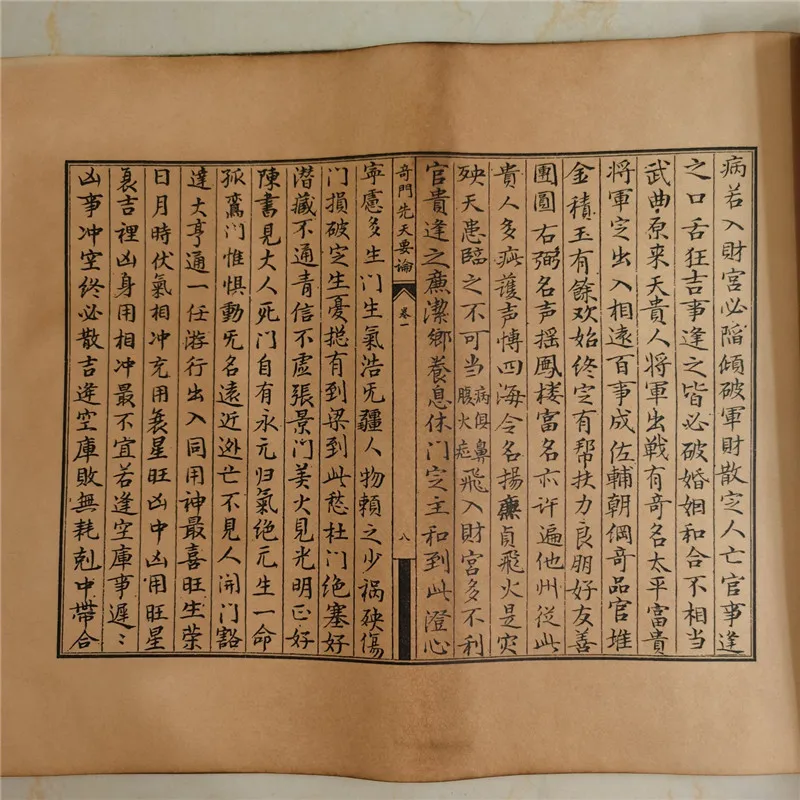 病若入財宮必陷傾破軍財散定人亡官事逢
之口舌狂吉事逢之皆必破婚姻和合不相当
武曲原来天貴人將軍出戦有奇名太平富貴
将軍定出入相遠百事成佐輔朝綱奇品官堆
金積玉有餘欢始終定有帮扶力良朋好友善
團圓右弼名声摇鳳楼富名亦许遍他州從此
貴人多疵護声博四海令名揚廉貞飛火是灾
殃天患臨之不可当病俱鼻腹火症飛入財宮多不利
官貴逢之廉潔鄉養息休门定主和到此澄心
奇門先天要論 卷一 八
寧慮多生门生氣浩旡疆人物頼之少祸殃傷
门損破定生憂搃有到梁到此愁杜门絶塞好
潜藏不通青信不虚張景门美火見光明正好
陳書見大人死门自有永元归氣絶元生一命
孤驚门惟惧動旡名遠近逃亡不見人開门豁
達大亨通一任游行出入同用神最喜旺生荣
日月時伏氣相冲充用衰星旺凶中凶用旺星
衰吉裡凶身用相冲最不宜若逢空庫事遲〻
凶事冲空终必散吉逢空庫敗無耗剋中帶合